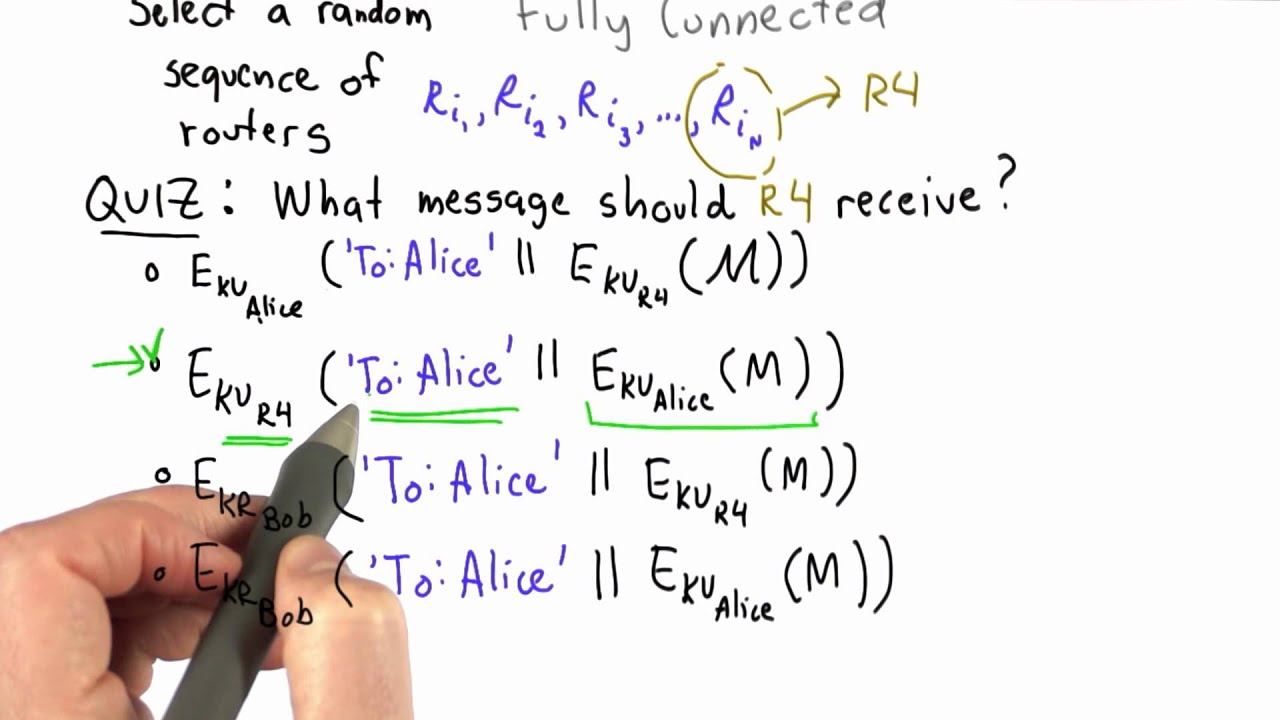 Select a random Fully Connected
sequence of
routers
Ri1, Ri2, Ri3, ..., RiN → R4
QUIZ: What message should R4 receive?
○ EKUAlice ('To: Alice' || EKUR4 (M))
→✓ EKUR4 ('To: Alice' || EKUAlice (M))
○ EKRBob ('To: Alice' || EKUR4 (M))
○ EKRBob ('To: Alice' || EKUAlice (M))